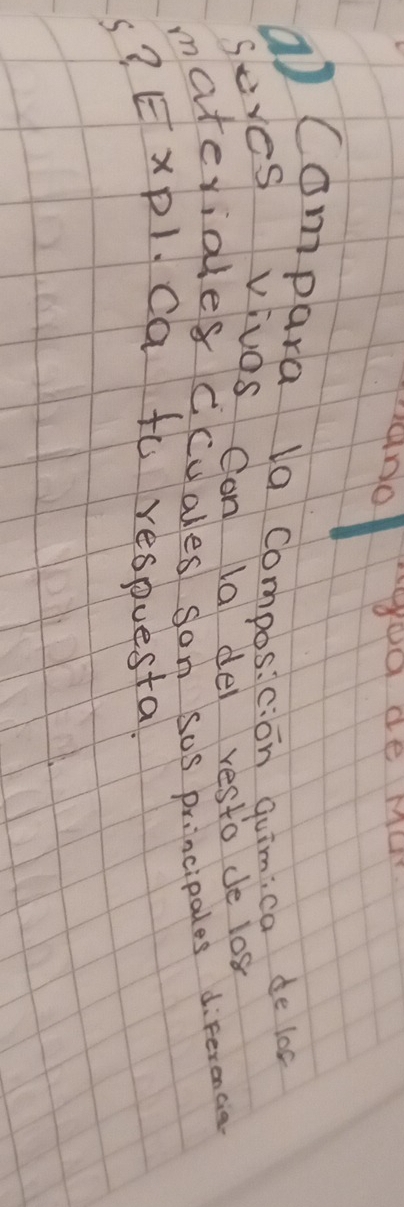 agua de Mar.
a) Compara la composición química de los
seres vivos con la del resto de los
materiales ¿Cuales son sus principales diferencia
s? Explica tu respuesta.